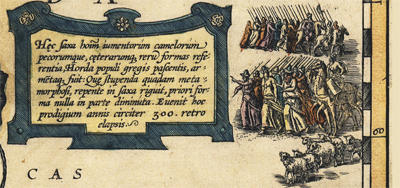 D A
Hęc saxa hoim̄ iumentorum camelorum
pecorumque, cęterarumq̨ rerū formas refe⸗
rentia, Horda populi gregis pascentis, ar⸗
mētaq̨ fuit: Quę stupenda quadam meta⸗
morphosi, repente in saxa riguit, priori for⸗
ma nulla in parte diminuta. Euenit hoc
prodigium annis circiter 300. retro
elapsis.
60
CAS